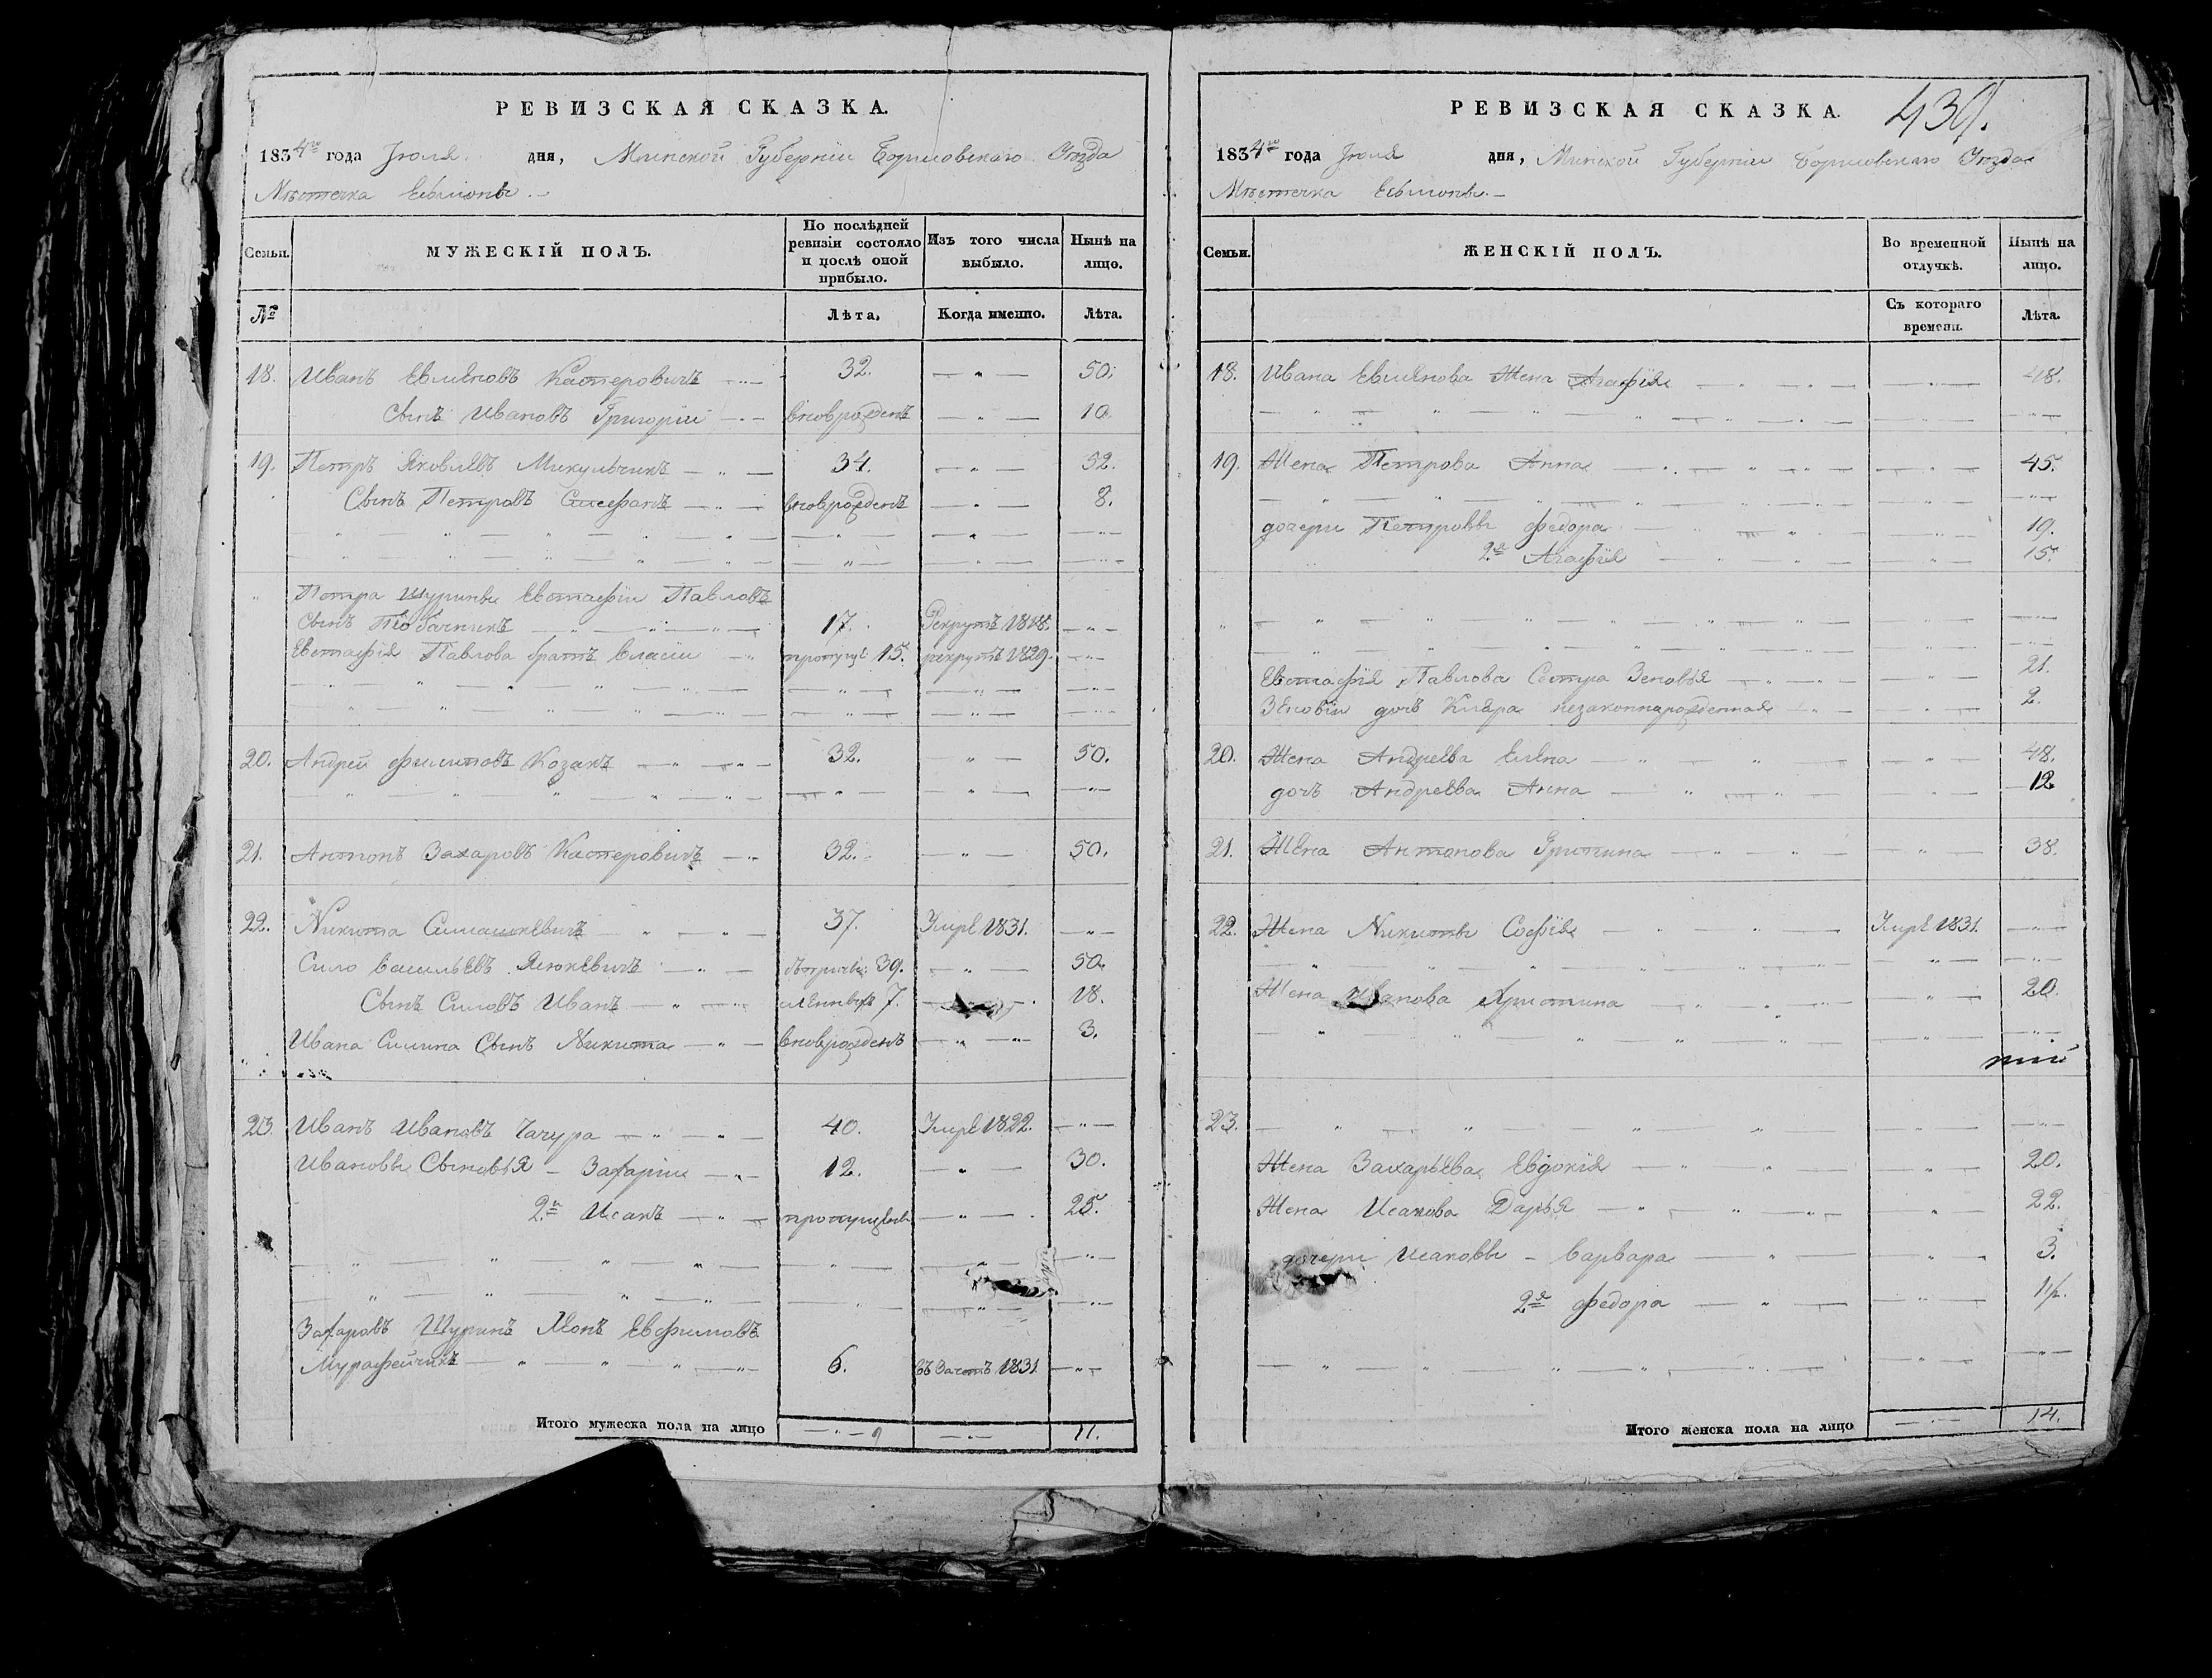 РЕВИЗСКАЯ СКАЗКА.
1834го года Июля дня, Минской Губернiи Борисовскаго Уѣзда
Мѣстечка
Семьи. МУЖЕСКIЙ ПОЛЪ. По послѣдней ревизiи состояло и послѣ оной прибыло. Изъ того числа выбыло. Нынѣ на лицо.
№ Лѣта, Когда именно. Лѣта.
18. Иванъ Емляновъ Кастеровичъ 32. 50.
Сынъ Ивановъ Григорiи вноврожденъ 10.
19. Петръ Яковлевъ Микульчикъ 34. 52.
Сынъ Петровъ Стефанъ вноврожденъ 8.
Петра Шурины Евстафiи Павловъ
Сынъ 17. Рекрутъ 1828.
Евстафiя Павлова братъ Власiи пропущ: 15. рекрутъ 1829.
20. Андрей Филиповъ Козакъ 32. 50.
21. Антонъ Захаровъ Кастеровичъ 32. 50.
22. Никита Симашкевичъ 37. Умре 1831.
Сило Васильевъ 39. 50.
Сынъ Силовъ Иванъ 7. 18.
Ивана Силина Сынъ Никита вноврожденъ 3.
23. Иванъ Ивановъ Чачура 40. Умре 1822.
Ивановы Сыновья – Захарiи 12. 30.
2й Исакъ пропущенъ 25.
Захаровъ Шуринъ Леонъ Евфимовъ
Мурафейчикъ 6. въ Зачетъ 1831.
Итого мужеска пола на лицо 9 11.
РЕВИЗСКАЯ СКАЗКА. 439.
1834го года Июля дня, Минской Губернiи Борисовскаго Уѣзда
Мѣстечка
Семьи. ЖЕНСКIЙ ПОЛЪ. Во временной отлучкѣ. Нынѣ на лицо.
Съ котораго времени. Лѣта.
18. Ивана Емлянова Жена Агафiя 48.
19. Жена Петрова Анна 45.
дочери Петровы Федора 19.
2я Агафiя 15.
Евстафiя Павлова Сестра Зеновья 21.
Зеновiи дочь Кляра незаконнорожденная 2.
20. Жена Андреева Елена 48.
дочь Андреева Анна 12
21. Жена Антонова Христина 38.
22. Жена Никиты Софiя Умре 1831.
Жена Иванова Христина 20.
23.
Жена Захарьева Евдокiя 20.
Жена Исакова Дарья 22.
дочери Исаковы – Варвара 3.
2я Федора 1/2.
Итого женска пола на лицо 14.